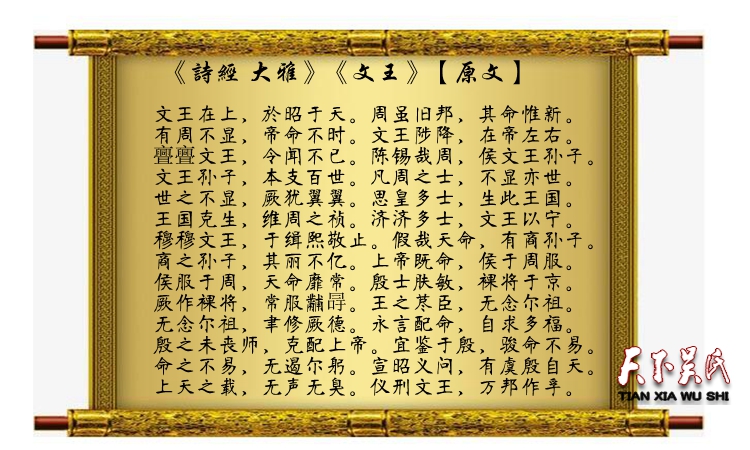 《詩經 大雅》《文王》【原文】
文王在上，於昭于天。周虽旧邦，其命惟新。
有周不显，帝命不时。文王陟降，在帝左右。
亹亹文王，令闻不已。陈锡哉周，侯文王孙子。
文王孙子，本支百世。凡周之士，不显亦世。
世之不显，厥犹翼翼。思皇多士，生此王国。
王国克生，维周之祯。济济多士，文王以宁。
穆穆文王，于缉熙敬止。假哉天命，有商孙子。
商之孙子，其丽不亿。上帝既命，侯于周服。
侯服于周，天命靡常。殷士肤敏，裸将于京。
厥作裸将，常服黼冔。王之荩臣，无念尔祖。
无念尔祖，聿修厥德。永言配命，自求多福。
殷之未丧师，克配上帝。宜鉴于殷，骏命不易。
命之不易，无遏尔躬。宣昭义问，有虞殷自天。
上天之载，无声无臭。仪刑文王，万邦作孚。
天下吴氏
TIAN XIA WU SHI